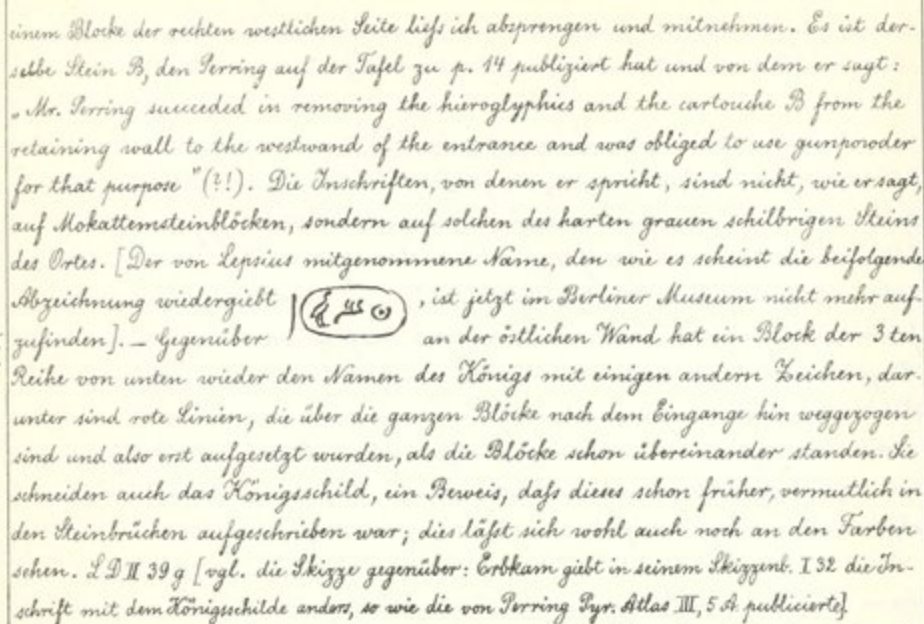 einem Blocke der rechten westlichen Seite liefs ich absprengen und mitnehmen. Es ist der-
selbe Stein B, den Perring auf der Tafel zu p. 14 publiziert hat und von dem er sagt:
„Mr. Perring succeded in removing the hieroglyphics and the cartouche B from the
retaining wall to the westwand of the entrance and was obliged to use gunpowder
for that purpose"(?!). Die Inschriften, von denen er spricht, sind nicht, wie er sagt,
auf Mokattemsteinblöcken, sondern auf solchen des harten grauen schilbrigen Steins
des Ortes. [Der von Lepsius mitgenommene Name, den wie es scheint die beifolgende
Abzeichnung wiedergiebt , ist jetzt im Berliner Museum nicht mehr auf-
zufinden]. — Gegenüber an der östlichen Wand hat ein Block der 3ten
Reihe von unten wieder den Namen des Königs mit einigen andern Zeichen, dar-
unter sind rote Linien, die über die ganzen Blöcke nach dem Eingange hin weggezogen
sind und also erst aufgesetzt wurden, als die Blöcke schon übereinander standen. Sie
schneiden auch das Königsschild, ein Beweis, dafs dieses schon früher, vermutlich in
den Steinbrücken aufgeschrieben war; dies läfst sich wohl auch noch an den Farben
sehen. LD II 39 g [vgl. die Skizze gegenüber: Erbkam giebt in seinem Skizzenb. I 32 die In-
schrift mit dem Königsschilde anders, so wie die von Perring Pyr. Atlas III, 5 A. publicierte].